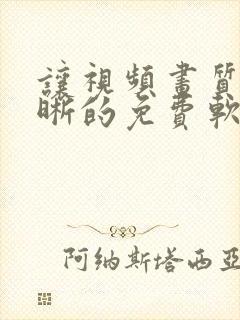 讓視頻畫質
晰的免費軟
阿纳斯塔西亞